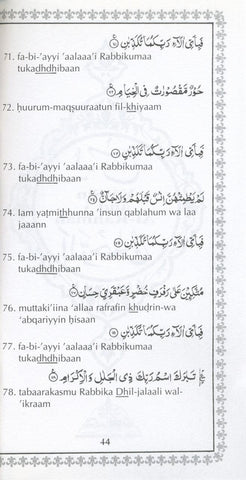 فَبِأَيِّ آلَاءِ رَبِّكُمَا تُكَذِّبَانِ ﴿٧١﴾
71. fa-bi-’ayyi ’aalaaa’i Rabbikumaa
tukadhdhibaan
حُورٌ مَّقْصُورَاتٌ فِي الْخِيَامِ ﴿٧٢﴾
72. ḥuurum-maqsuuraatun fil-khiyaam
فَبِأَيِّ آلَاءِ رَبِّكُمَا تُكَذِّبَانِ ﴿٧٣﴾
73. fa-bi-’ayyi ’aalaaa’i Rabbikumaa
tukadhdhibaan
لَمْ يَطْمِثْهُنَّ إِنسٌ قَبْلَهُمْ وَلَا جَانٌّ ﴿٧٤﴾
74. lam yaṭmithhunna ’insun qablahum wa laa
jaaann
فَبِأَيِّ آلَاءِ رَبِّكُمَا تُكَذِّبَانِ ﴿٧٥﴾
75. fa-bi-’ayyi ’aalaaa’i Rabbikumaa
tukadhdhibaan
مُتَّكِئِينَ عَلَىٰ رَفْرَفٍ خُضْرٍ وَعَبْقَرِيٍّ حِسَانٍ ﴿٧٦﴾
76. muttaki’iina ‘allaa rafrafin khuḍrin-wa
‘abqariyyin ḥisaan
فَبِأَيِّ آلَاءِ رَبِّكُمَا تُكَذِّبَانِ ﴿٧٧﴾
77. fa-bi-’ayyi ’aalaaa’i Rabbikumaa
tukadhdhibaan
تَبَارَكَ اسْمُ رَبِّكَ ذِي الْجَلَالِ وَالْإِكْرَامِ ﴿٧٨﴾
78. tabaarakasmu Rabbika Dhil-jalaali wal-
’ikraam
44